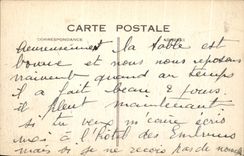 CARTE POSTALE
CORRESPONDANCE
heureusement la table est
bonne et nous nous reposons
vraiment quand au temps
il a fait beau 2 jours.
il pleut maintenant
si tu veux m'écrire écris
moi à l'hôtel des
mais si je ne reçois pas de